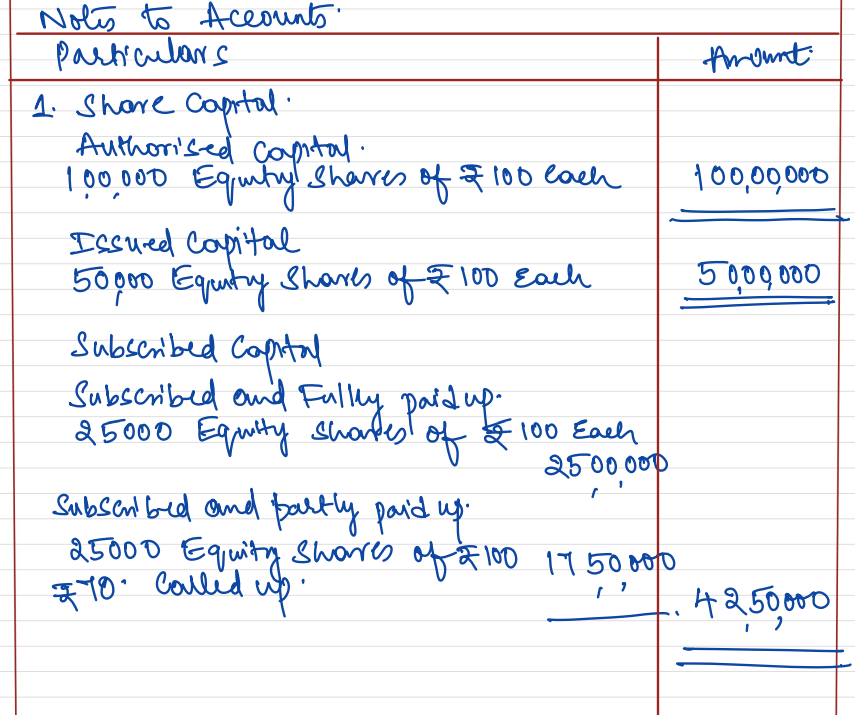 Notes to Accounts.
Particulars Amount
1. Share Capital.
Authorised Capital.
100,000 Equity Shares of ₹100 each 100,00,000
Issued Capital
50,000 Equity Shares of ₹100 Each 50,00,000
Subscribed Capital
Subscribed and Fully paid up.
25000 Equity Shares of ₹100 Each
25,00,000
Subscribed and partly paid up.
25000 Equity Shares of ₹100 17,50,000
₹70. Called up. 42,50,000